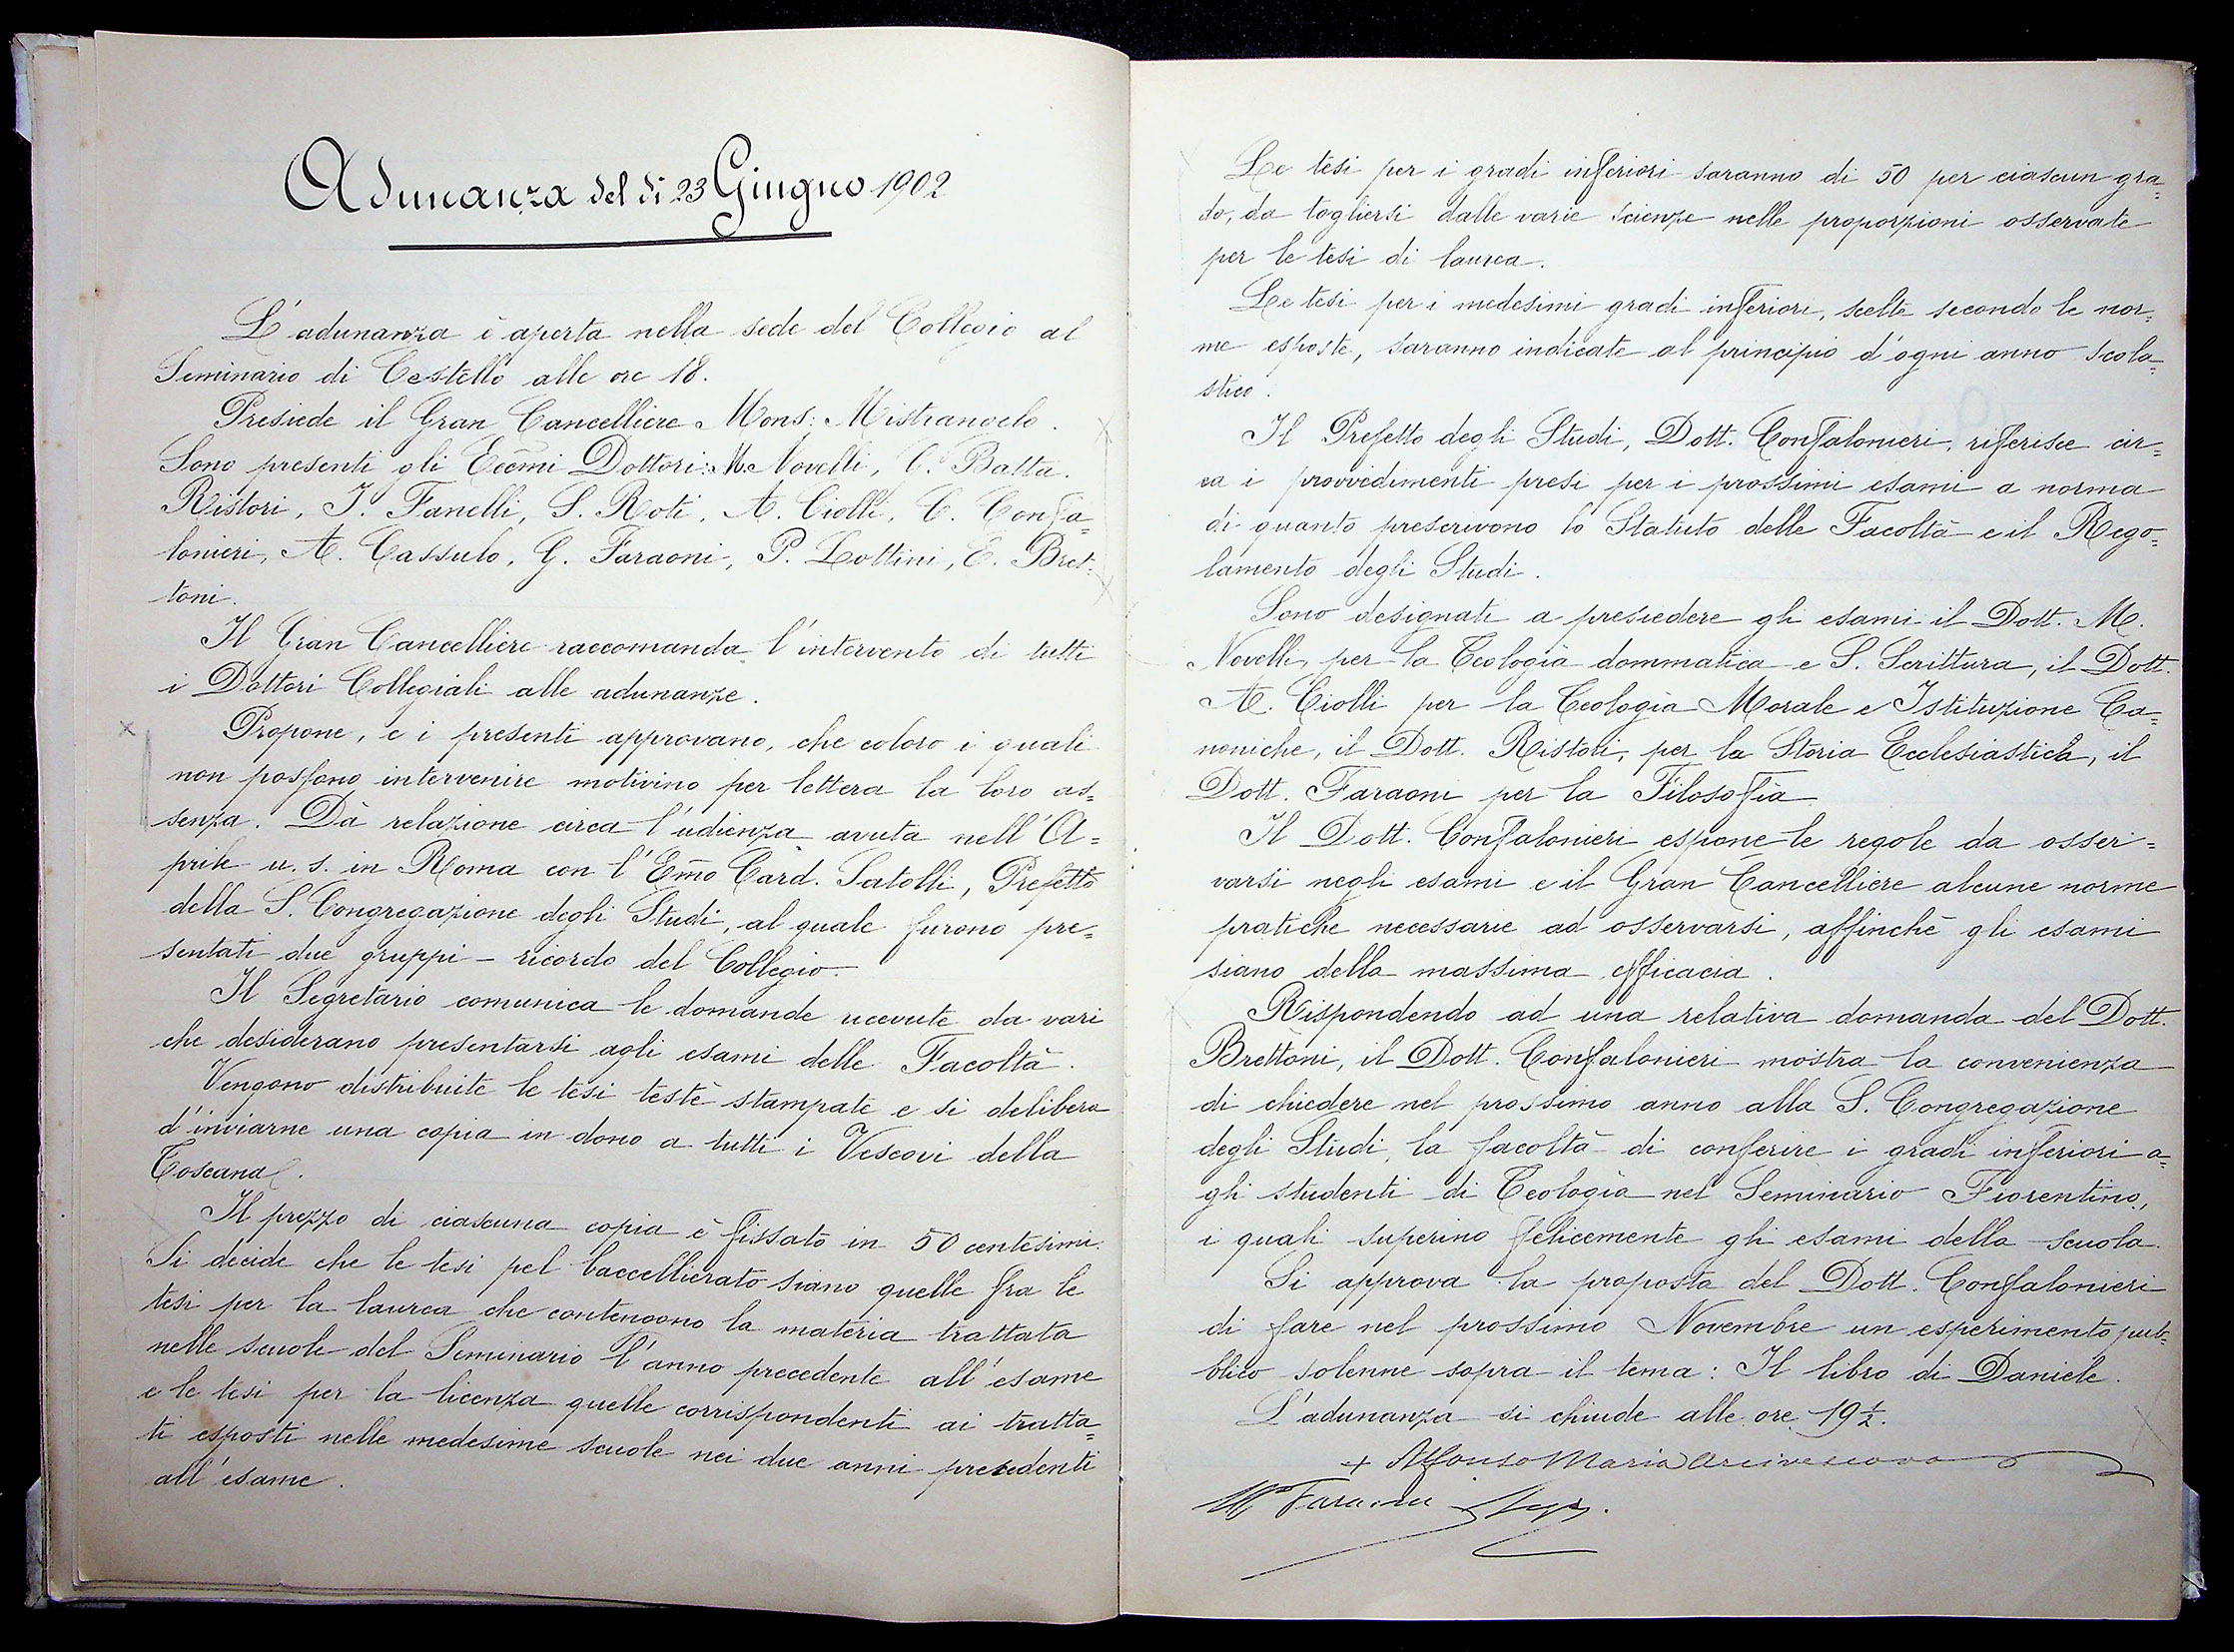 Adunanza del dì 23 Giugno 1902
L'adunanza è aperta nella sede del Collegio al
Seminario di Cestello alle ore 18.
Presiede il Gran Cancelliere Mons: Mistrangelo.
Sono presenti gli Eccmi Dottori: M. Novelli, C. Batta.
Ristori, I. Fanelli, S. Roti, A. Ciolli, C. Confa=
lonieri, A. Cassulo, G. Faraoni, P. Lottini, E. Bret=
toni.
Il Gran Cancelliere raccomanda l'intervento di tutti
i Dottori Collegiali alle adunanze.
Propone, e i presenti approvano, che coloro i quali
non possono intervenire motivino per lettera la loro as=
senza. Dà relazione circa l'udienza avuta nell'A=
prile u. s. in Roma con l'Emo Card. Satolli, Prefetto
della S. Congregazione degli Studi, al quale furono pre=
sentati due gruppi - ricordo del Collegio.
Il Segretario comunica le domande ricevute da vari
che desiderano presentarsi agli esami delle Facoltà.
Vengono distribuite le tesi testè stampate e si delibera
d'inviarne una copia in dono a tutti i Vescovi della
Toscana.
Il prezzo di ciascuna copia è fissato in 50 centesimi.
Si decide che le tesi pel baccellierato siano quelle fra le
tesi per la laurea che contengono la materia trattata
nelle scuole del Seminario l'anno precedente all'esame
e le tesi per la licenza quelle corrispondenti ai tratta=
ti esposti nelle medesime scuole nei due anni precedenti
all'esame.
Le tesi per i gradi inferiori saranno di 50 per ciascun gra=
do, da togliersi dalle varie scienze nelle proporzioni osservate
per le tesi di laurea.
Le tesi per i medesimi gradi inferiori, scelte secondo le nor=
me esposte, saranno indicate al principio d'ogni anno scola=
stico.
Il Prefetto degli Studi, Dott. Confalonieri, riferisce cir=
ca i provvedimenti presi per i prossimi esami a norma
di quanto prescrivono lo Statuto delle Facoltà e il Rego=
lamento degli Studi.
Sono designati a presiedere gli esami il Dott. M.
Novelli, per la Teologia dommatica e S. Scrittura, il Dott.
A. Ciolli per la Teologia Morale e Istituzione Ca=
noniche, il Dott. Ristori, per la Storia Ecclesiastica, il
Dott. Faraoni per la Filosofia.
Il Dott. Confalonieri espone le regole da osser=
varsi negli esami e il Gran Cancelliere alcune norme
pratiche necessarie ad osservarsi, affinchè gli esami
siano della massima efficacia.
Rispondendo ad una relativa domanda del Dott.
Brettoni, il Dott. Confalonieri mostra la convenienza
di chiedere nel prossimo anno alla S. Congregazione
degli Studi, la facoltà di conferire i gradi inferiori a=
gli studenti di Teologia nel Seminario Fiorentino,
i quali superino felicemente gli esami della scuola.
Si approva la proposta del Dott. Confalonieri
di fare nel prossimo Novembre un esperimento pub=
blico solenne sopra il tema: Il libro di Daniele.
L'adunanza si chiude alle ore 19 ½.
+ Alfonso Maria Arcivescovo
Faraoni Segr.